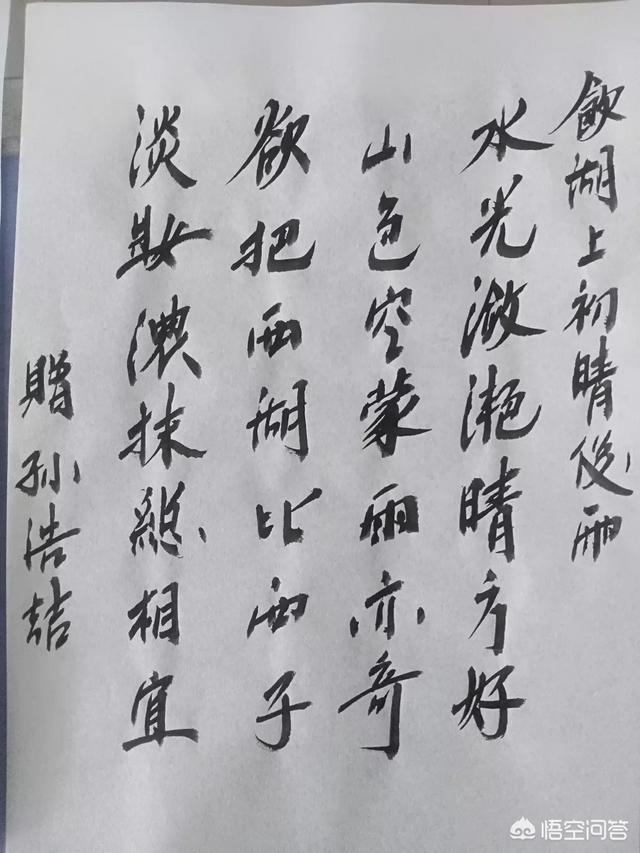 飲湖上初晴後雨
水光潋滟晴方好
山色空蒙雨亦奇
欲把西湖比西子
淡妝濃抹總相宜
贈孙浩喆
悟空问答